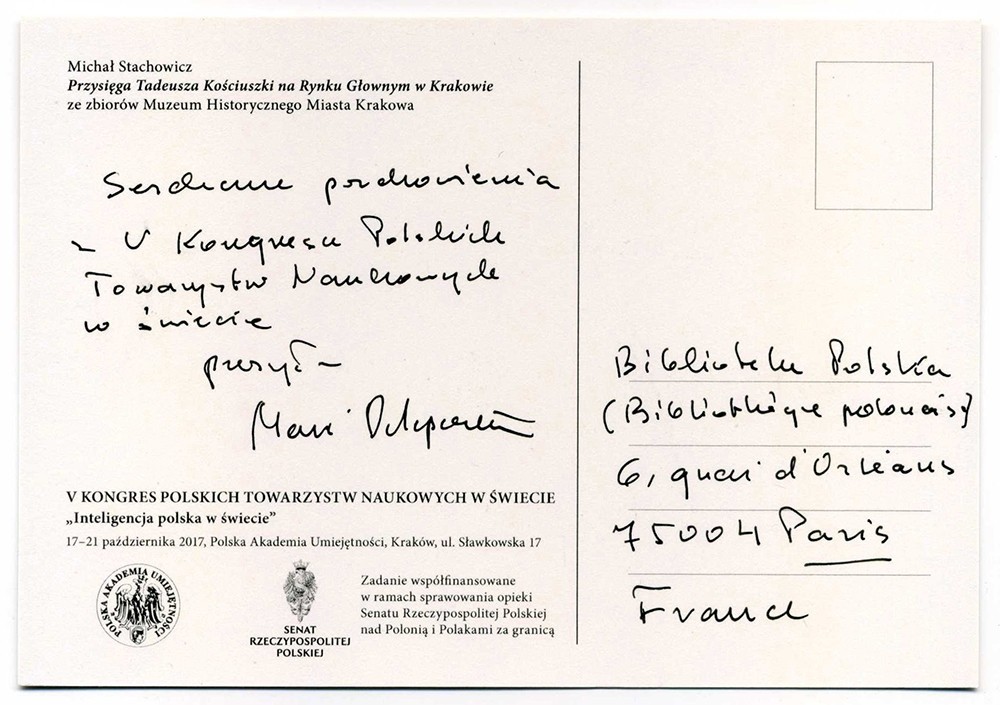 Michał Stachowicz
Przysięga Tadeusza Kościuszki na Rynku Głownym w Krakowie
ze zbiorów Muzeum Historycznego Miasta Krakowa
Serdeczne pozdrowienia
z V Kongresu Polskich
Towarzystw Naukowych
w świecie
przesyła
V KONGRES POLSKICH TOWARZYSTW NAUKOWYCH W ŚWIECIE
„Inteligencja polska w świecie”
17–21 października 2017, Polska Akademia Umiejętności, Kraków, ul. Sławkowska 17
POLSKA AKADEMIA UMIEJĘTNOŚCI
SENAT
RZECZYPOSPOLITEJ
POLSKIEJ
Zadanie współfinansowane
w ramach sprawowania opieki
Senatu Rzeczypospolitej Polskiej
nad Polonią i Polakami za granicą
Biblioteka Polska
(Bibliothèque polonaise)
6, quai d'Orléans
75004 Paris
France